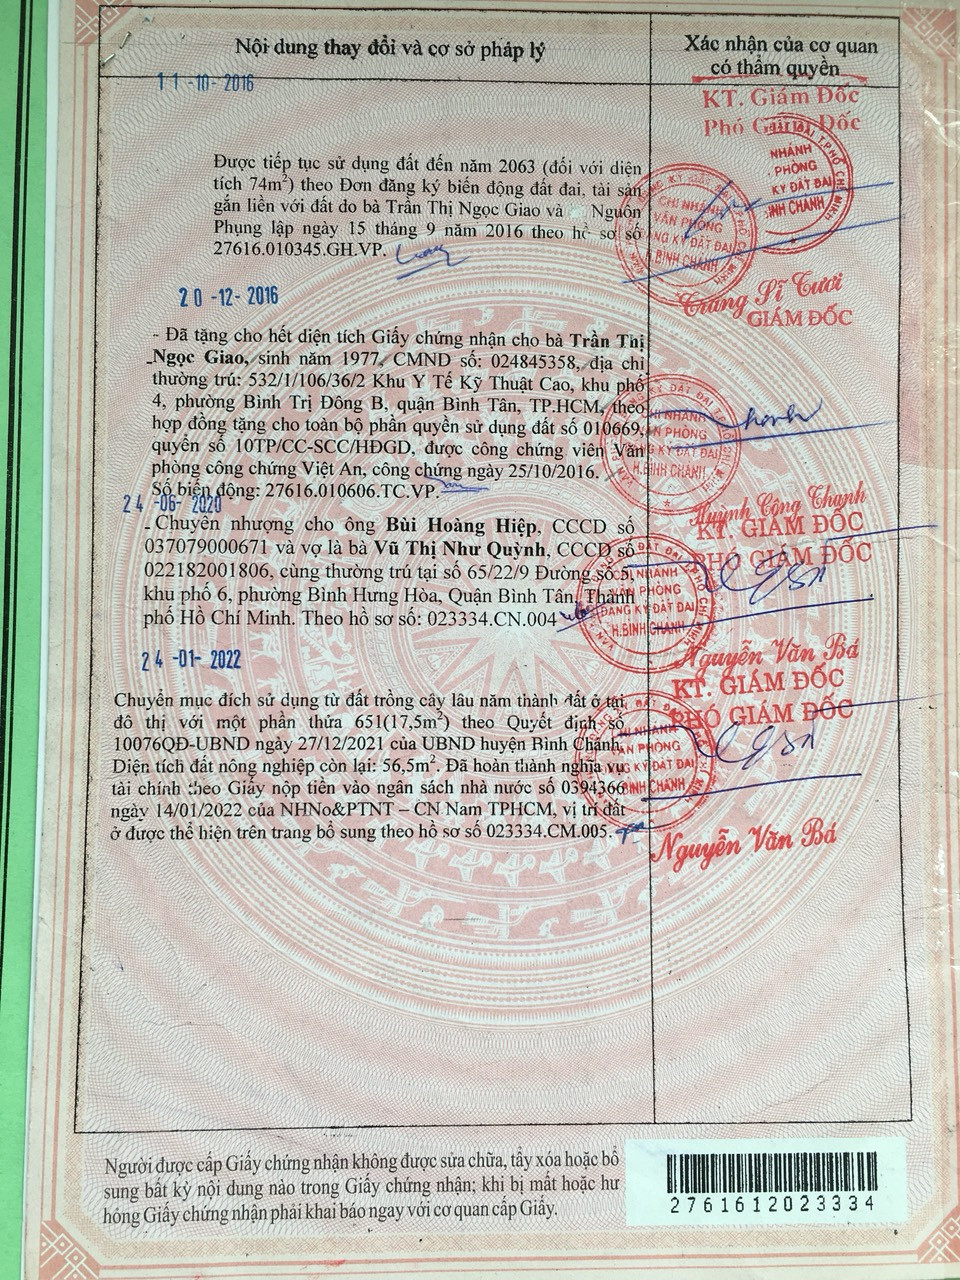 Nội dung thay đổi và cơ sở pháp lý
Xác nhận của cơ quan
có thẩm quyền
11-10-2016
KT. Giám Đốc
Phó Giám Đốc
Được tiếp tục sử dụng đất đến năm 2063 (đối với diện
tích 74m²) theo Đơn đăng ký biến động đất đai, tài sản
gắn liền với đất do bà Trần Thị Ngọc Giao và Nguôn
Phụng lập ngày 15 tháng 9 năm 2016 theo hồ sơ số
27616.010345.GH.VP.
CHI NHÁNH
VĂN PHÒNG
ĐĂNG KÝ ĐẤT ĐAI
H.BÌNH CHÁNH
NHÁNH
PHÒNG
KÝ ĐẤT ĐAI
BÌNH CHÁNH
Trung Sĩ Tươi
GIÁM ĐỐC
20-12-2016
- Đã tặng cho hết diện tích Giấy chứng nhận cho bà Trần Thị
Ngọc Giao, sinh năm 1977, CMND số: 024845358, địa chỉ
thường trú: 532/1/106/36/2 Khu Y Tế Kỹ Thuật Cao, khu phố
4, phường Bình Trị Đông B, quận Bình Tân, TP.HCM, theo
hợp đồng tặng cho toàn bộ phần quyền sử dụng đất số 010669,
quyển số 10TP/CC-SCC/HĐGD, được công chứng viên Văn
phòng công chứng Việt An, công chứng ngày 25/10/2016.
Số biến động: 27616.010606.TC.VP.
CHI NHÁNH
VĂN PHÒNG
ĐĂNG KÝ ĐẤT ĐAI
H.BÌNH CHÁNH
Huỳnh Công Thanh
24-06-2020
KT. GIÁM ĐỐC
PHÓ GIÁM ĐỐC
- Chuyển nhượng cho ông Bùi Hoàng Hiệp, CCCD số
037079000671 và vợ là bà Vũ Thị Như Quỳnh, CCCD số
022182001806, cùng thường trú tại số 65/22/9 Đường số 5,
khu phố 6, phường Bình Hưng Hòa, Quận Bình Tân, Thành
phố Hồ Chí Minh. Theo hồ sơ số: 023334.CN.004
CHI NHÁNH
VĂN PHÒNG
ĐĂNG KÝ ĐẤT ĐAI
H.BÌNH CHÁNH
Nguyễn Văn Bá
24-01-2022
KT. GIÁM ĐỐC
PHÓ GIÁM ĐỐC
Chuyển mục đích sử dụng từ đất trồng cây lâu năm thành đất ở tại
đô thị với một phần thửa 651(17,5m²) theo Quyết định số
10076QĐ-UBND ngày 27/12/2021 của UBND huyện Bình Chánh.
Diện tích đất nông nghiệp còn lại: 56,5m². Đã hoàn thành nghĩa vụ
tài chính theo Giấy nộp tiền vào ngân sách nhà nước số 0394366
ngày 14/01/2022 của NHNo&PTNT – CN Nam TPHCM, vị trí đất
ở được thể hiện trên trang bổ sung theo hồ sơ số 023334.CM.005.
CHI NHÁNH
VĂN PHÒNG
ĐĂNG KÝ ĐẤT ĐAI
H.BÌNH CHÁNH
Nguyễn Văn Bá
Người được cấp Giấy chứng nhận không được sửa chữa, tẩy xóa hoặc bổ
sung bất kỳ nội dung nào trong Giấy chứng nhận; khi bị mất hoặc hư
hỏng Giấy chứng nhận phải khai báo ngay với cơ quan cấp Giấy.
2761612023334